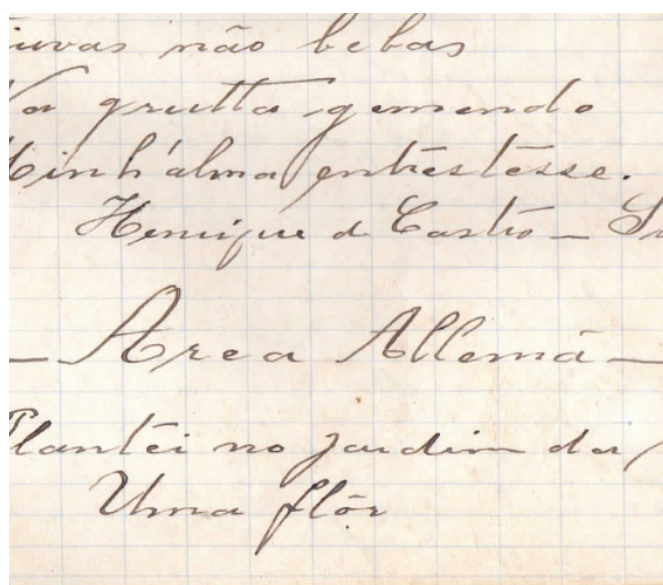 não bebas
gruta gemendo
Minh'alma entrestesse.
Henrique de Castro —
— Area Allemã —
Plantei no jardim da
Uma flôr